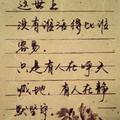 这世上
没有谁活得比谁
容易
只是有人在呼天
喊地，有人在静
默坚守